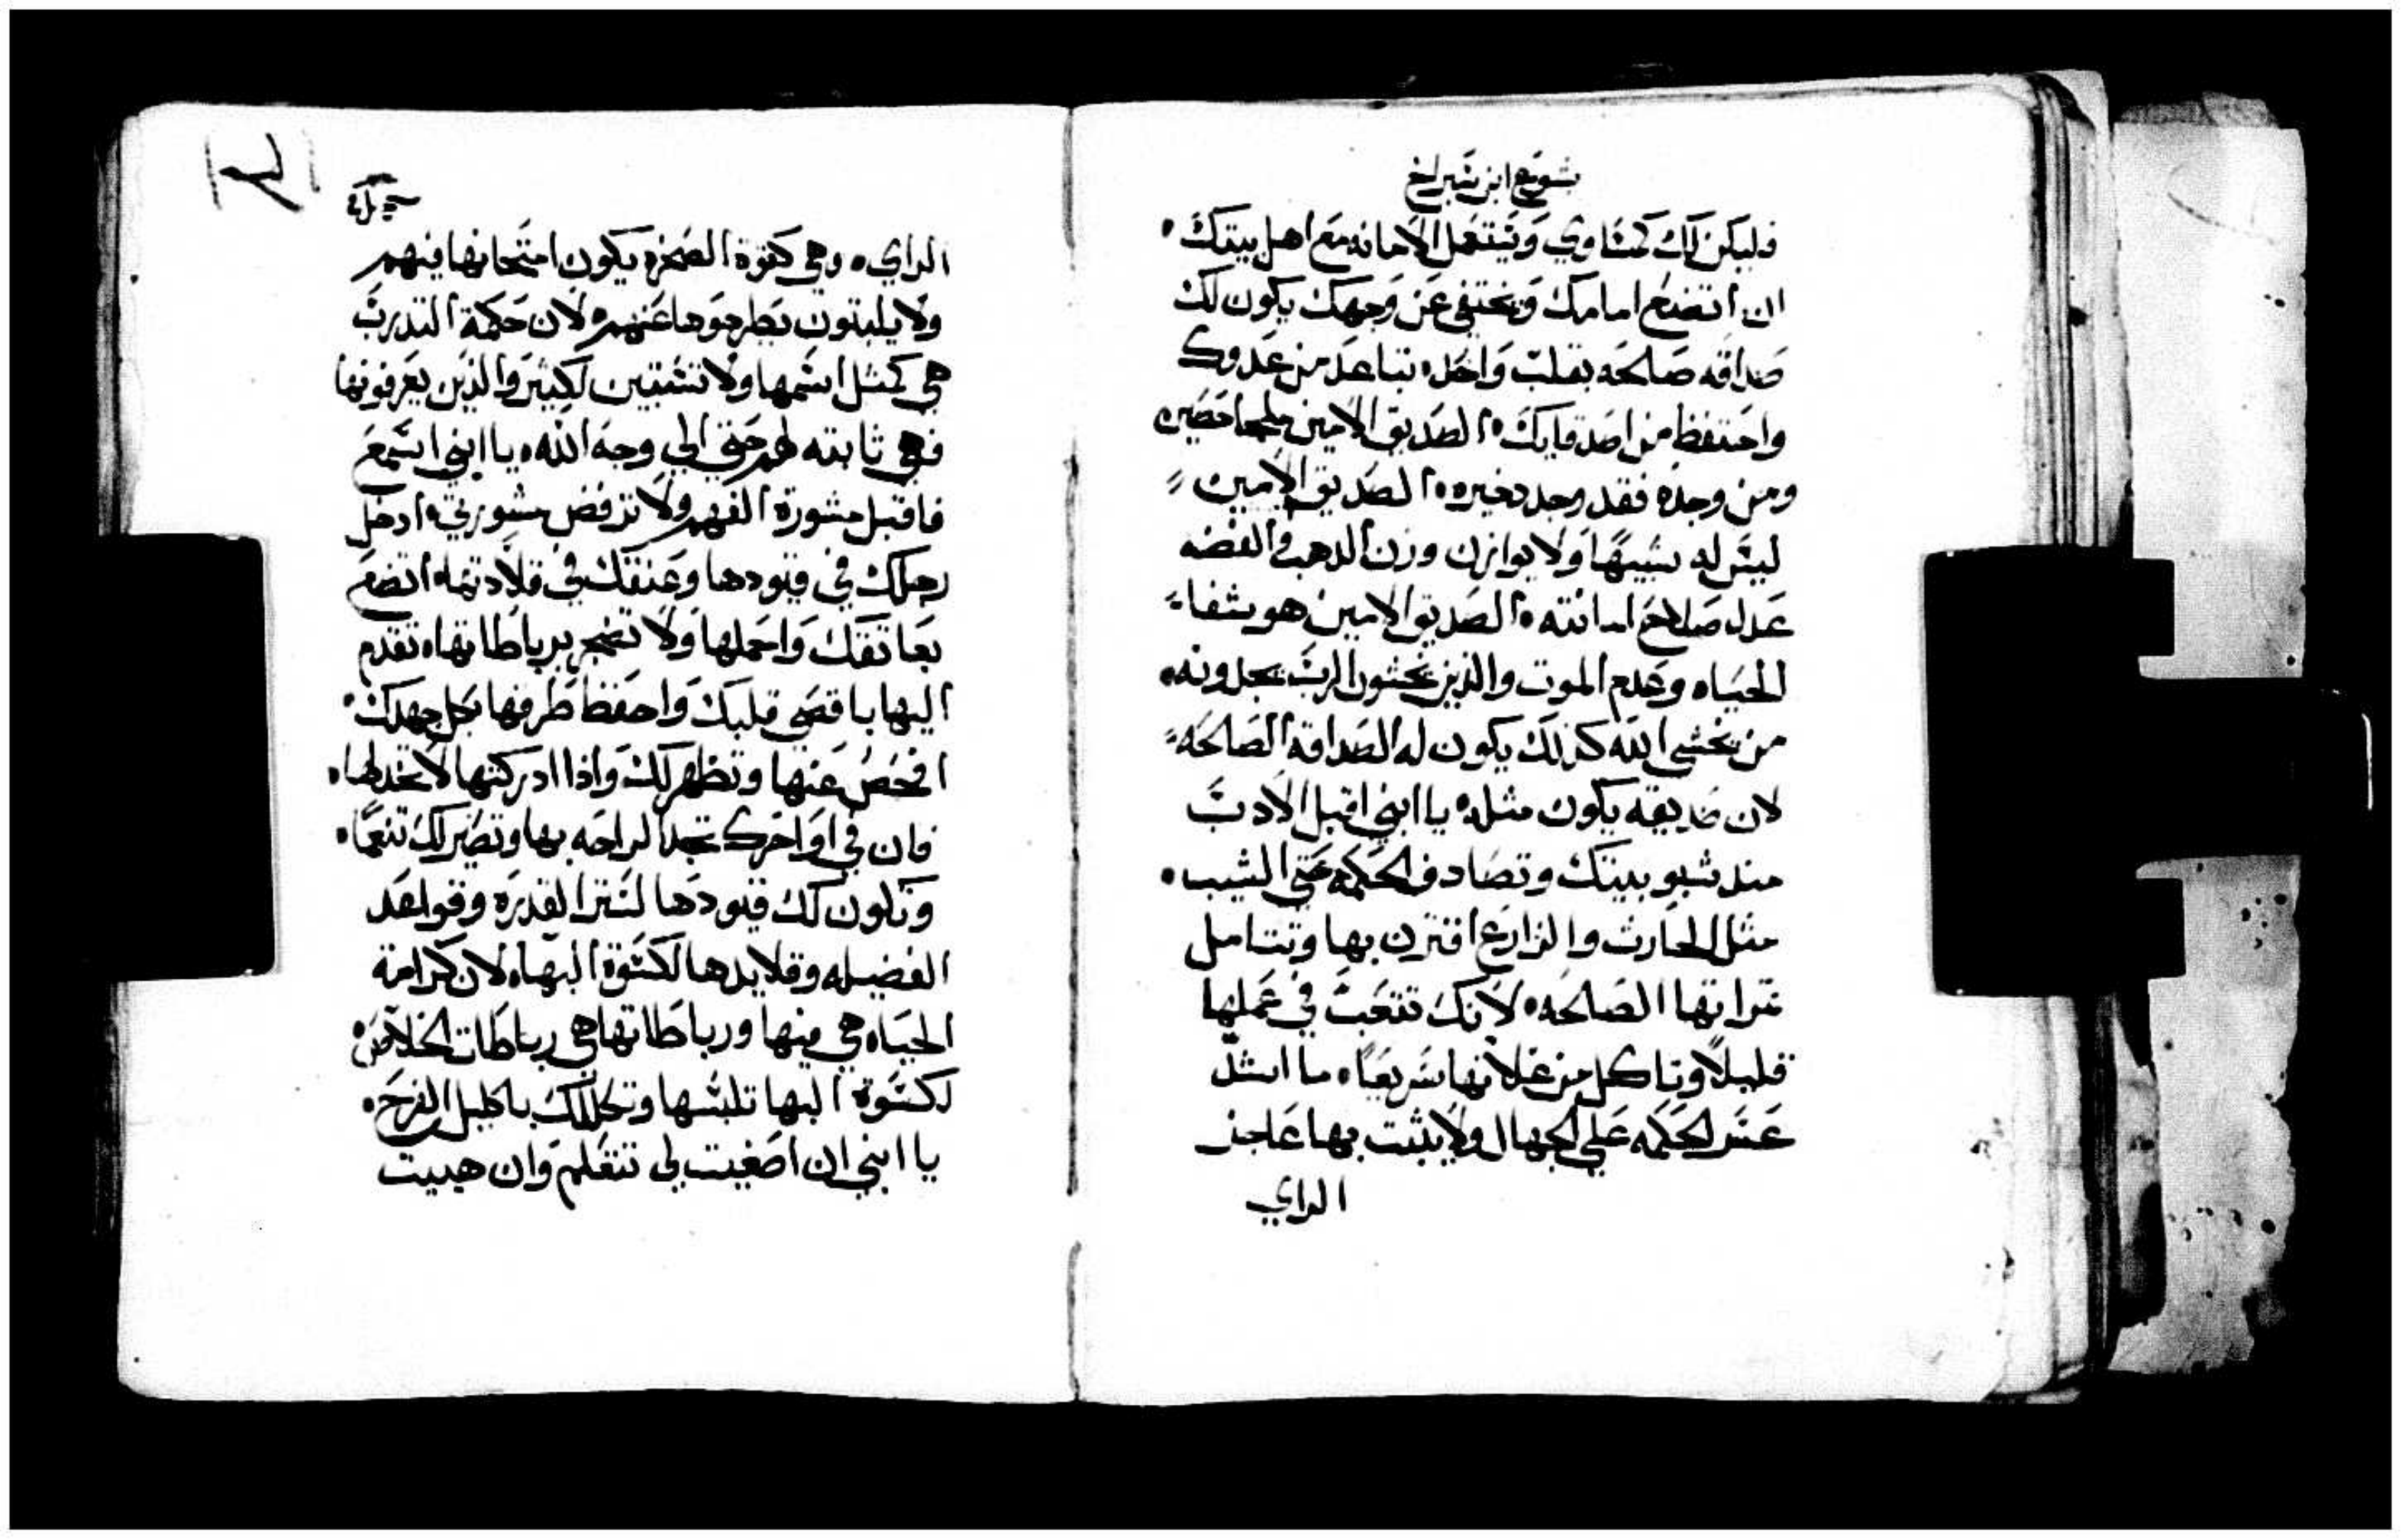 يشوع ابن شيراخ
فليكن لك كمساوي ويستعمل الامانه مع اهل بيتك
ان اتضع امامك ويختفي عن وجهك يكون لك
صداقه صالحه بقلب واحد تباعد من عدوك
واحتفظ من اصدقايك الصديق الامين ملجا حصين
ومن وجده فقد وجد دخيره الصديق الامين
ليس له شبيهًا ولا يوازن وزن الدهب والفضه
عدل صلاح امانته الصديق الامين هو شفا
الحياه وعدم الموت والذين يخشون الرب يجدونه
من يخشي الله كذلك يكون له الصداقه الصالحه
لان صديقه يكون مثله يا ابني اقبل الادب
مند شبوبيتك وتصادف الحكمه حتي الشيب
مثل الحارث والزارع اقترن بها وتتامل
ثمراتها الصالحه لانك تتعب في عملها
قليلاً وتاكل من غلاتها سريعًا ما اشد
عسر الحكمه علي الجهال ولا يثبت بها عاجز
الراي
الراي وهي كقوة الصخره يكون امتحانها فيهم
ولا يلبتون يطرحوها عنهم لان حكمة التدرب
هي كمثل اسمها ولا تستبين لكثير والذين يعرفونها
فهي ثابته لهم حتي الي وجه الله يا ابني اسمع
فاقبل مشورة الفهم ولا ترفض مشورتي وادخل
رجلك في قيودها وعنقك في قلادتها اتضع
بعاتقك واحملها ولا تضجر برباطاتها تقدم
اليها باقصي قلبك واحفظ طرقها بكل جهدك
افحص عنها وتظهر لك واذا ادركتها لا تخدلها
فان في اواخرك تجد الراحه بها وتصير لك تنعمًا
وتكون لك قيودها لستر القدره وقواعد
الفضيله وقلايدها لكسوة البهاء لان كرامة
الحياه هي فيها ورباطاتها هي رباطات الخلاص
لكسوة البها تلبسها وتكللك باكليل الفرح
يا ابني ان اصغيت لي تتعلم وان هييت